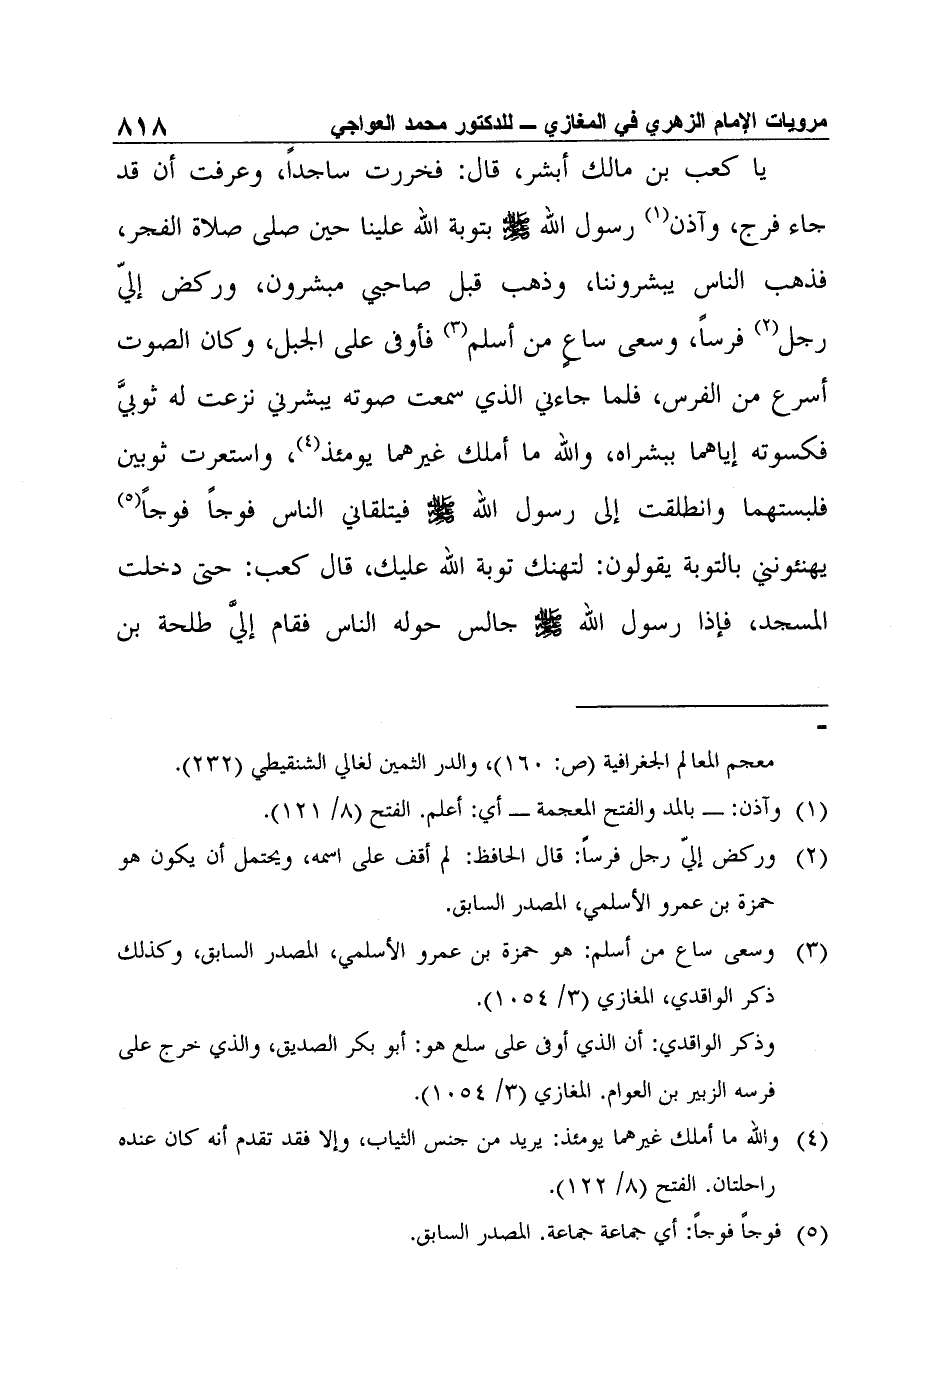 مرويات الإمام الزهري في المغازي ــ للدكتور محمد العواجي ٨١٨
يا كعب بن مالك أبشر، قال: فخررت ساجداً، وعرفت أن قد
جاء فرج، وآذن(١) رسول الله ﷺ بتوبة الله علينا حين صلى صلاة الفجر،
فذهب الناس يبشروننا، وذهب قبل صاحبي مبشرون، وركض إليّ
رجل(٢) فرساً، وسعى ساعٍ من أسلم(٣) فأوفى على الجبل، وكان الصوت
أسرع من الفرس، فلما جاءني الذي سمعت صوته يبشرني نزعت له ثوبيَّ
فكسوته إياهما ببشراه، والله ما أملك غيرهما يومئذ(٤)، واستعرت ثوبين
فلبستهما وانطلقت إلى رسول الله ﷺ فيتلقاني الناس فوجاً فوجاً(٥)
يهنئونني بالتوبة يقولون: لتهنك توبة الله عليك، قال كعب: حتى دخلت
المسجد، فإذا رسول الله ﷺ جالس حوله الناس فقام إليَّ طلحة بن
-
معجم المعالم الجغرافية (ص: ١٦٠)، والدر الثمين لغالي الشنقيطي (٢٣٢).
(١) وآذن: ــ بالمد والفتح المعجمة ــ أي: أعلم. الفتح (٨/ ١٢١).
(٢) وركض إليّ رجل فرساً: قال الحافظ: لم أقف على اسمه، ويحتمل أن يكون هو
حمزة بن عمرو الأسلمي، المصدر السابق.
(٣) وسعى ساع من أسلم: هو حمزة بن عمرو الأسلمي، المصدر السابق، وكذلك
ذكر الواقدي، المغازي (٣/ ١٠٥٤).
وذكر الواقدي: أن الذي أوفى على سلع هو: أبو بكر الصديق، والذي خرج على
فرسه الزبير بن العوام. المغازي (٣/ ١٠٥٤).
(٤) والله ما أملك غيرهما يومئذ: يريد من جنس الثياب، وإلا فقد تقدم أنه كان عنده
راحلتان. الفتح (٨/ ١٢٢).
(٥) فوجاً فوجاً: أي جماعة جماعة. المصدر السابق.